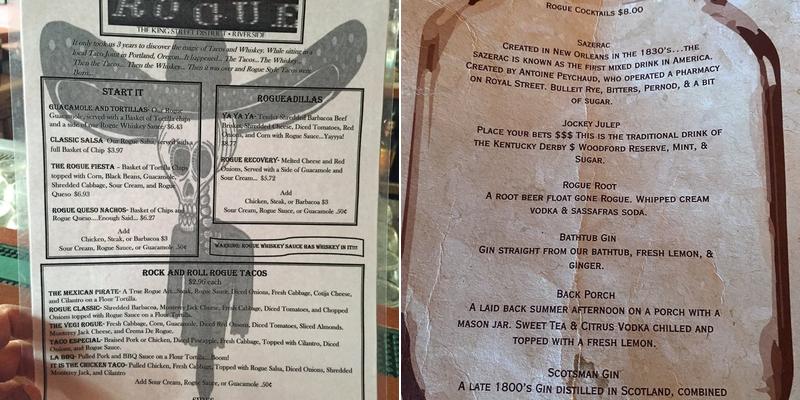 ROGUE
THE KING STREET DISTRICT • RIVERSIDE
It only took us 3 years to discover the magic of Tacos and Whiskey. While sitting in a
local Taco Joint in Portland, Oregon...It happened... The Tacos...The Whiskey...
Then the Tacos... Then the Whiskey... Then it was over and Rogue Style Tacos were
Born...
START IT
GUACAMOLE AND TORTILLAS- Our Rogue
Guacamole, served with a Basket of Tortilla chips
and a side of our Rogue Whiskey Sauce. $6.43
CLASSIC SALSA- Our Rogue Salsa, served with a
full Basket of Chip! $3.97
THE ROGUE FIESTA - Basket of Tortilla Chips
topped with Corn, Black Beans, Guacamole,
Shredded Cabbage, Sour Cream, and Rogue
Queso $6.93
ROGUE QUESO NACHOS- Basket of Chips and
Rogue Queso....Enough Said... $6.27
Add
Chicken, Steak, or Barbacoa $3
Sour Cream, Rogue Sauce, or Guacamole .50¢
ROGUEADILLAS
YA YA YA- Tender Shredded Barbacoa Beef
Brisket, Shredded Cheese, Diced Tomatoes, Red
Onions, and Corn with Rogue Sauce...Yayyya!
$8.77
ROGUE RECOVERY- Melted Cheese and Red
Onions, Served with a Side of Guacamole and
Sour Cream... $5.72
Add
Chicken, Steak, or Barbacoa $3
Sour Cream, Rogue Sauce, or Guacamole .50¢
WARNING: ROGUE WHISKEY SAUCE HAS WHISKEY IN IT!!!!
ROCK AND ROLL ROGUE TACOS
$2.96 each
THE MEXICAN PIRATE- A True Rogue Art...Steak, Rogue Sauce, Diced Onions, Fresh Cabbage, Cotija Cheese,
and Cilantro on a Flour Tortilla.
ROGUE CLASSIC- Shredded Barbacoa, Monterey Jack Cheese, Fresh Cabbage, Diced Tomatoes, and Chopped
Onions topped with Rogue Sauce on a Flour Tortilla.
THE VEGI ROGUE- Fresh Cabbage, Corn, Guacamole, Diced Red Onions, Diced Tomatoes, Sliced Almonds,
Monterey Jack Cheese, and Crema De Rogue.
TACO ESPECIAL- Braised Pork or Chicken, Diced Pineapple, Fresh Cabbage, Topped with Cilantro, Diced
Onions, and Rogue Sauce.
LA BBQ- Pulled Pork and BBQ Sauce on a Flour Tortilla...Boom!
IT IS THE CHICKEN TACO- Pulled Chicken, Fresh Cabbage, Topped with Rogue Salsa, Diced Onions, Shredded
Monterey Jack, and Cilantro
Add Sour Cream, Rogue Sauce, or Guacamole .50¢
SIDES
ROGUE COCKTAILS $8.00
SAZERAC
CREATED IN NEW ORLEANS IN THE 1830'S...THE
SAZERAC IS KNOWN AS THE FIRST MIXED DRINK IN AMERICA.
CREATED BY ANTOINE PEYCHAUD, WHO OPERATED A PHARMACY
ON ROYAL STREET. BULLEIT RYE, BITTERS, PERNOD, & A BIT
OF SUGAR.
JOCKEY JULEP
PLACE YOUR BETS $$$ THIS IS THE TRADITIONAL DRINK OF
THE KENTUCKY DERBY $ WOODFORD RESERVE, MINT, &
SUGAR.
ROGUE ROOT
A ROOT BEER FLOAT GONE ROGUE. WHIPPED CREAM
VODKA & SASSAFRAS SODA.
BATHTUB GIN
GIN STRAIGHT FROM OUR BATHTUB, FRESH LEMON, &
GINGER.
BACK PORCH
A LAID BACK SUMMER AFTERNOON ON A PORCH WITH A
MASON JAR. SWEET TEA & CITRUS VODKA CHILLED AND
TOPPED WITH A FRESH LEMON.
SCOTSMAN GIN
A LATE 1800'S GIN DISTILLED IN SCOTLAND, COMBINED